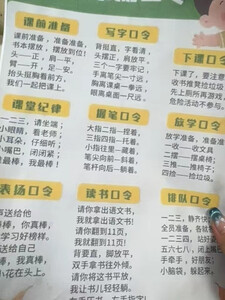 课前准备
课前准备，准备准备，
书本摆放，摆放到位！
头——正，肩——平，
臂——并，足——安，
抬头挺胸看前方，
我们一起把课上。
写字口令
背挺直，字看清，
头摆正，肩放平，
三个一字要牢记，
手离笔尖一寸远，
胸离课桌一拳远，
眼离桌面一尺远。
下课口令
下了，要注意
收书推凳捡垃圾
先上厕所再游戏
危险活动不参与。
课堂纪律
一二三，请坐端；
小眼睛，看老师；
小耳朵，仔细听；
小嘴巴，闭闭紧；
我最棒，我最棒。
握笔口令
大指二指一捏着，
三指四指一托着，
小指往里一藏着，
笔尖向前一斜着，
笔杆向后一躺着。
放学口令
放学准备，准备
一收——收文具
二摆—摆桌椅；
三推—推椅子；
四捡—捡垃圾。
表扬口令
掌声送给他
棒，你真棒，
学习好榜样。
送给自己
棒，我真棒，
小花在头上。
读书口令
请你拿出语文书，
我就拿出语文书！
请你翻到11页！
我就翻到11页！
背要直，脚放平，
双手拿书往外倾。
请你将这书平放，
我让书儿轻轻躺。
排队口令
一二三，静齐快
全员准备，各就
一二三四，站好
五六七八，闭上
手牵手，好朋友
小脑袋，躲起来。